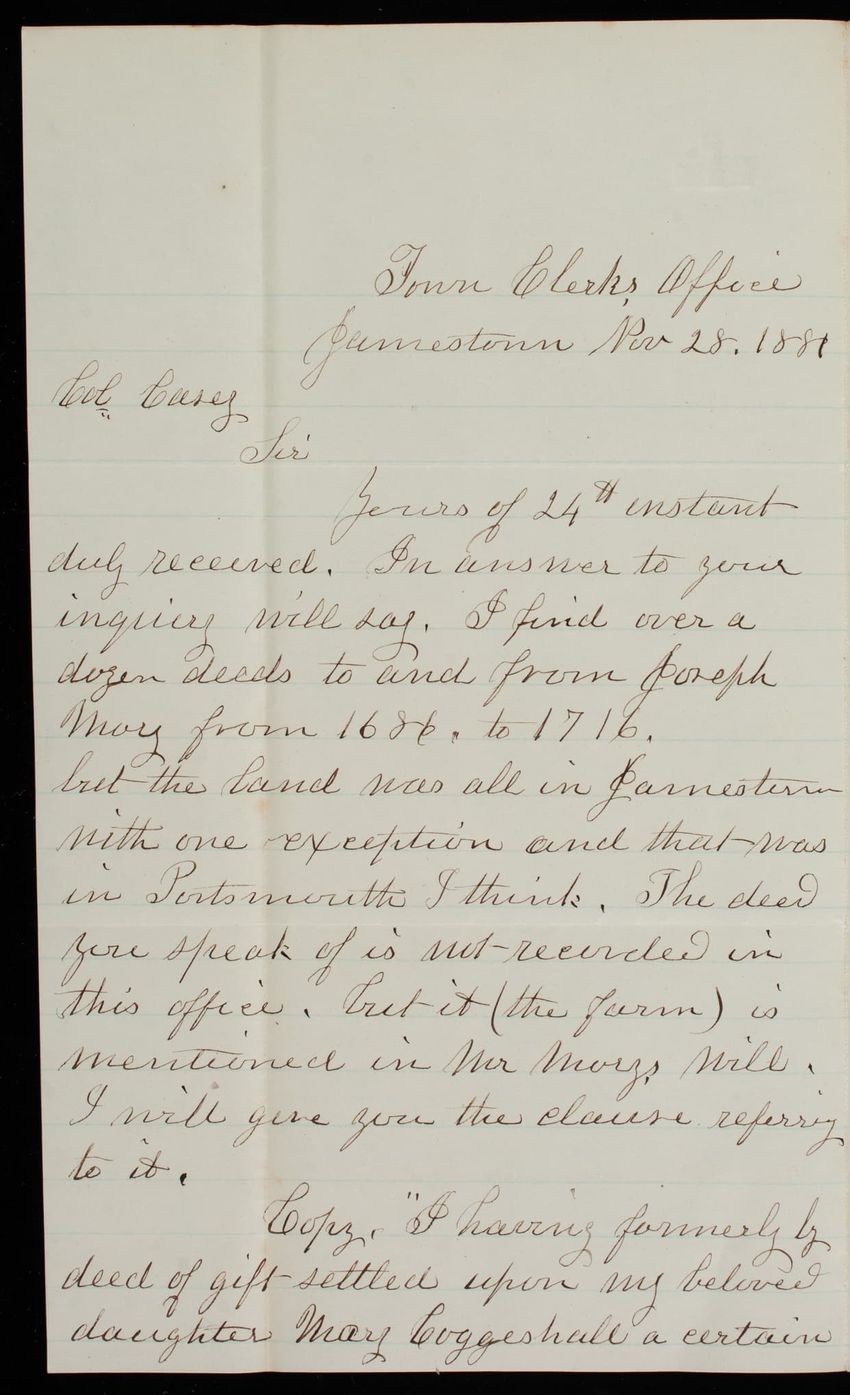 Town Clerks Office
Jamestown Nov 28. 1881
Col. Casey
Sir
Yours of 24th instant
duly received. In answer to your
inquiery will say. I find over a
dozen deeds to and from Joseph
Mory from 1686. to 1716.
but the land was all in Jamestown
with one exception and that was
in Portsmouth I think. The deed
you speak of is not recorded in
this office. but it (the farm) is
mentioned in Mr Morys Will.
I will give you the clause referrig
to it.
Copy. "I having formerly by
deed of gift settled upon my beloved
daughter Mary Coggeshall a certain